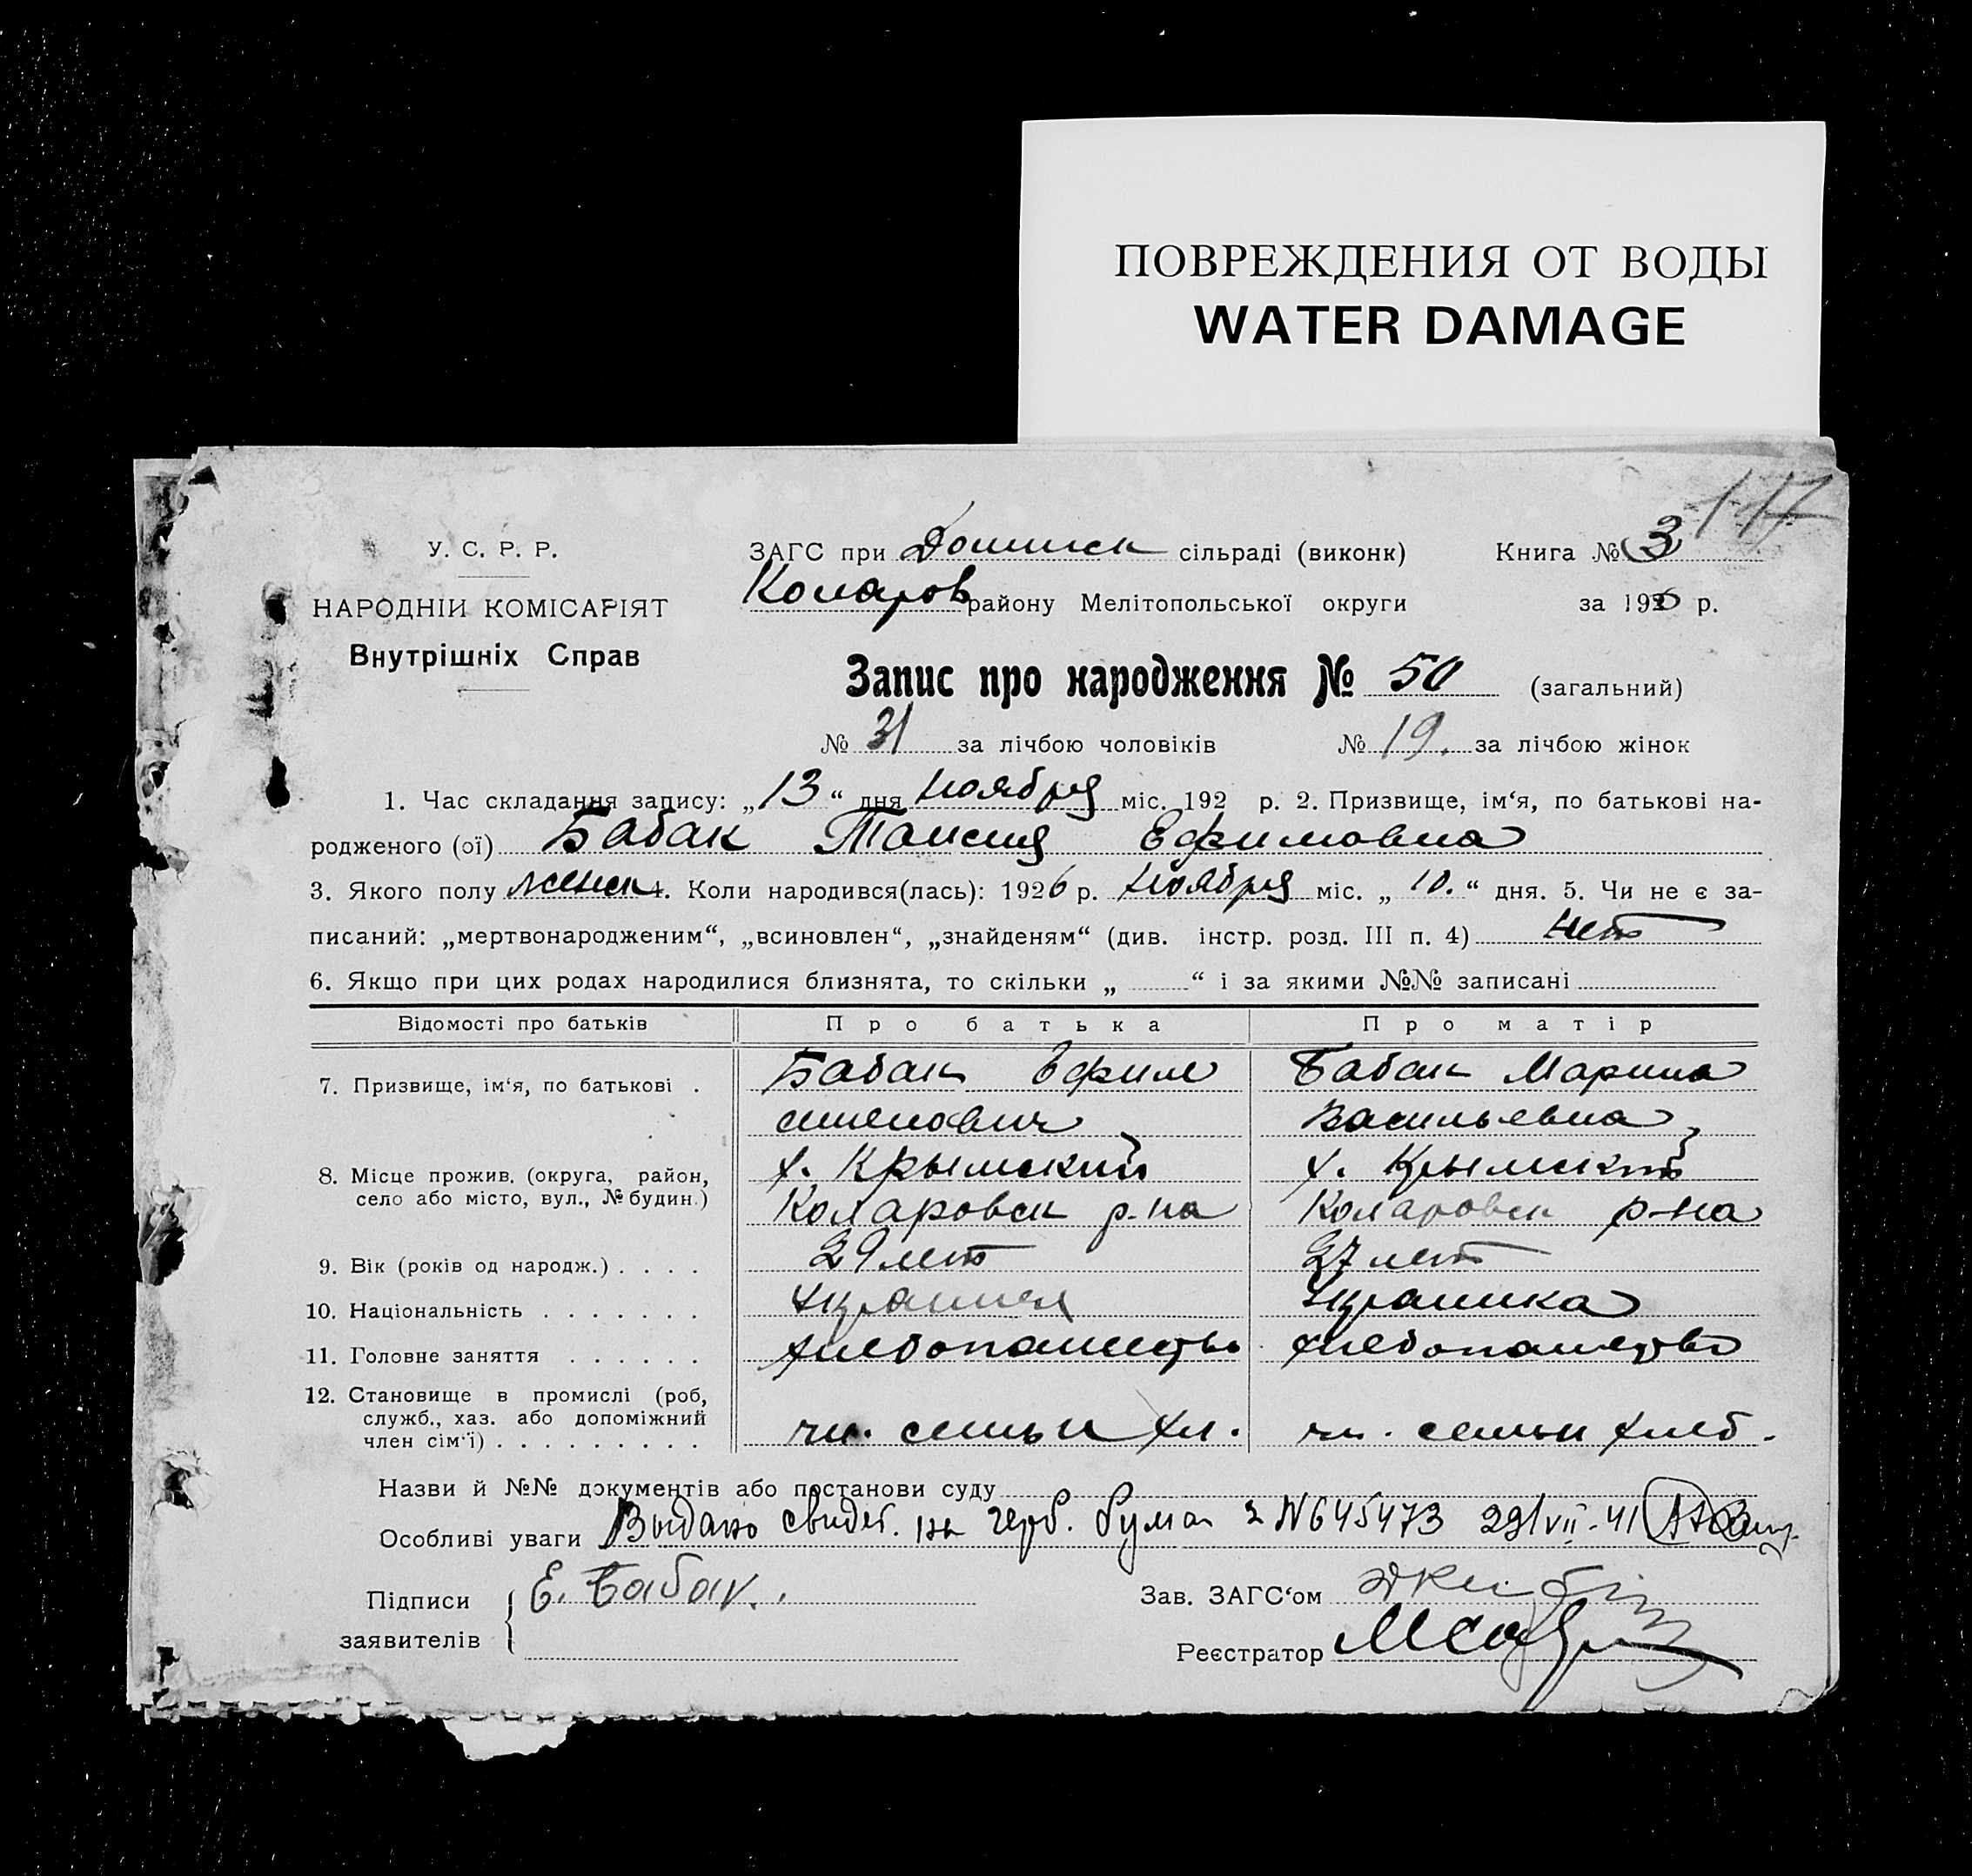 ПОВРЕЖДЕНИЯ ОТ ВОДЫ
WATER DAMAGE
117
У. С. Р. Р.
НАРОДНІЙ КОМІСАРІЯТ
Внутрішніх Справ
ЗАГС при сільраді (виконк) Книга № 3
Коларов району Мелітопольської округи за 1926 р.
Запис про народження № 50 (загальний)
№ 31 за лічбою чоловіків № 19. за лічбою жінок
1. Час складання запису: „13“ дня ноября міс. 192 р. 2. Призвище, ім‘я, по батькові на-
родженого (ої) Бабак Таисия Ефимовна
3. Якого полу женск 4. Коли народився(лась): 1926 р. ноября міс. „10.“ дня. 5. Чи не є за-
писаний: „мертвонародженим“, „всиновлен“, „знайденям“ (див. інстр. розд. III п. 4) нет
6. Якщо при цих родах народилися близнята, то скільки „ “ і за якими №№ записані
Відомості про батьків Про батька Про матір
7. Призвище, ім‘я, по батькові . Бабак Ефим Бабак Марина
Васильевна
8. Місце прожив. (округа, район, х. Крымский х. Крымский
село або місто, вул., № будин.) Коларовск р-на Коларовск р-на
9. Вік (років од народж.) . . . . 29 лет 27 лет
10. Національність . . . . . . . Украинец Украинка
11. Головне заняття . . . . . . хлебопашество хлебопашество
12. Становище в промислі (роб,
служб., хаз. або допоміжний
член сім‘ї) . . . . . . . . . чл. семьи хл. чл. семьи хлеб.
Назви й №№ документів або постанови суду
Особливі уваги Выдано свидет. на герб. бумаг N 645473 29/VII-41
Підписи Е. Бабак.
заявителів
Зав. ЗАГС‘ом
Реєстратор